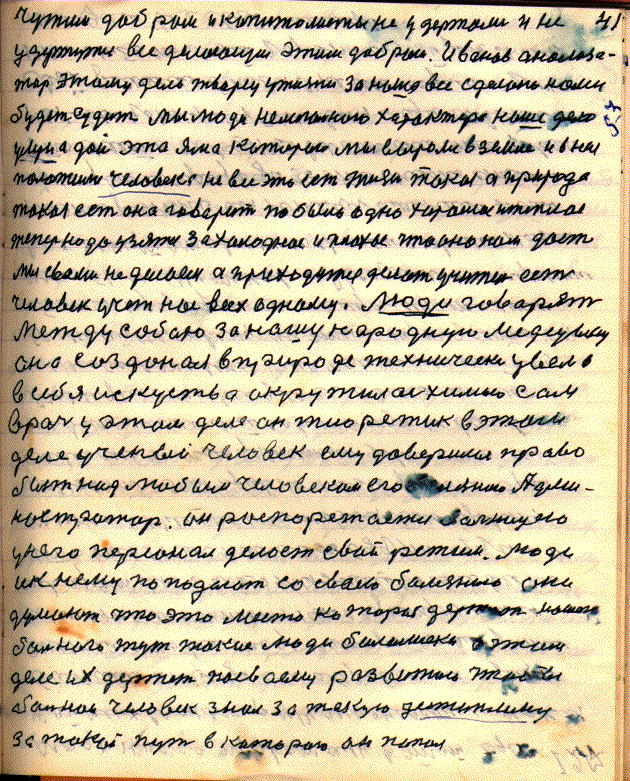 чужим добром и капиталисты не удержали и не 41
удержится все делающия этим добром. Иванов анализа-
тор этому делу творец ужизни За наше все сделано нами
будет судит мы люди немошного характера наше дело
одна дай эта яма которого мы вырыли в земле и в ней
положили человека не все это ест жизн такая а природа
такая ест она говорит по было одно хорошее и теплое
теперь надо узяти За холодное и плохое что оно нам даст
мы сваими не делаем а приходится делат учител ест
человек учет нас всех одному. Люди говарят
между собаю За нашу народную медецыну
она создоная в природе технически увела
в себя искуства окружилас химию сам
врач у этом деле он тиоретик в этом
деле ученый человек ему доверили право
быт над любым человеком его Адми-
ностратор. он роспоретается
унего персонал делает свой режим. Люди
ик нему поподают со сваею болезнию они
думают что это место которые держит нашого
больного тут такие люди этим
деле их держет посваему развитию
больной человек знал За такую детиплину
За такой пут в которою он попал